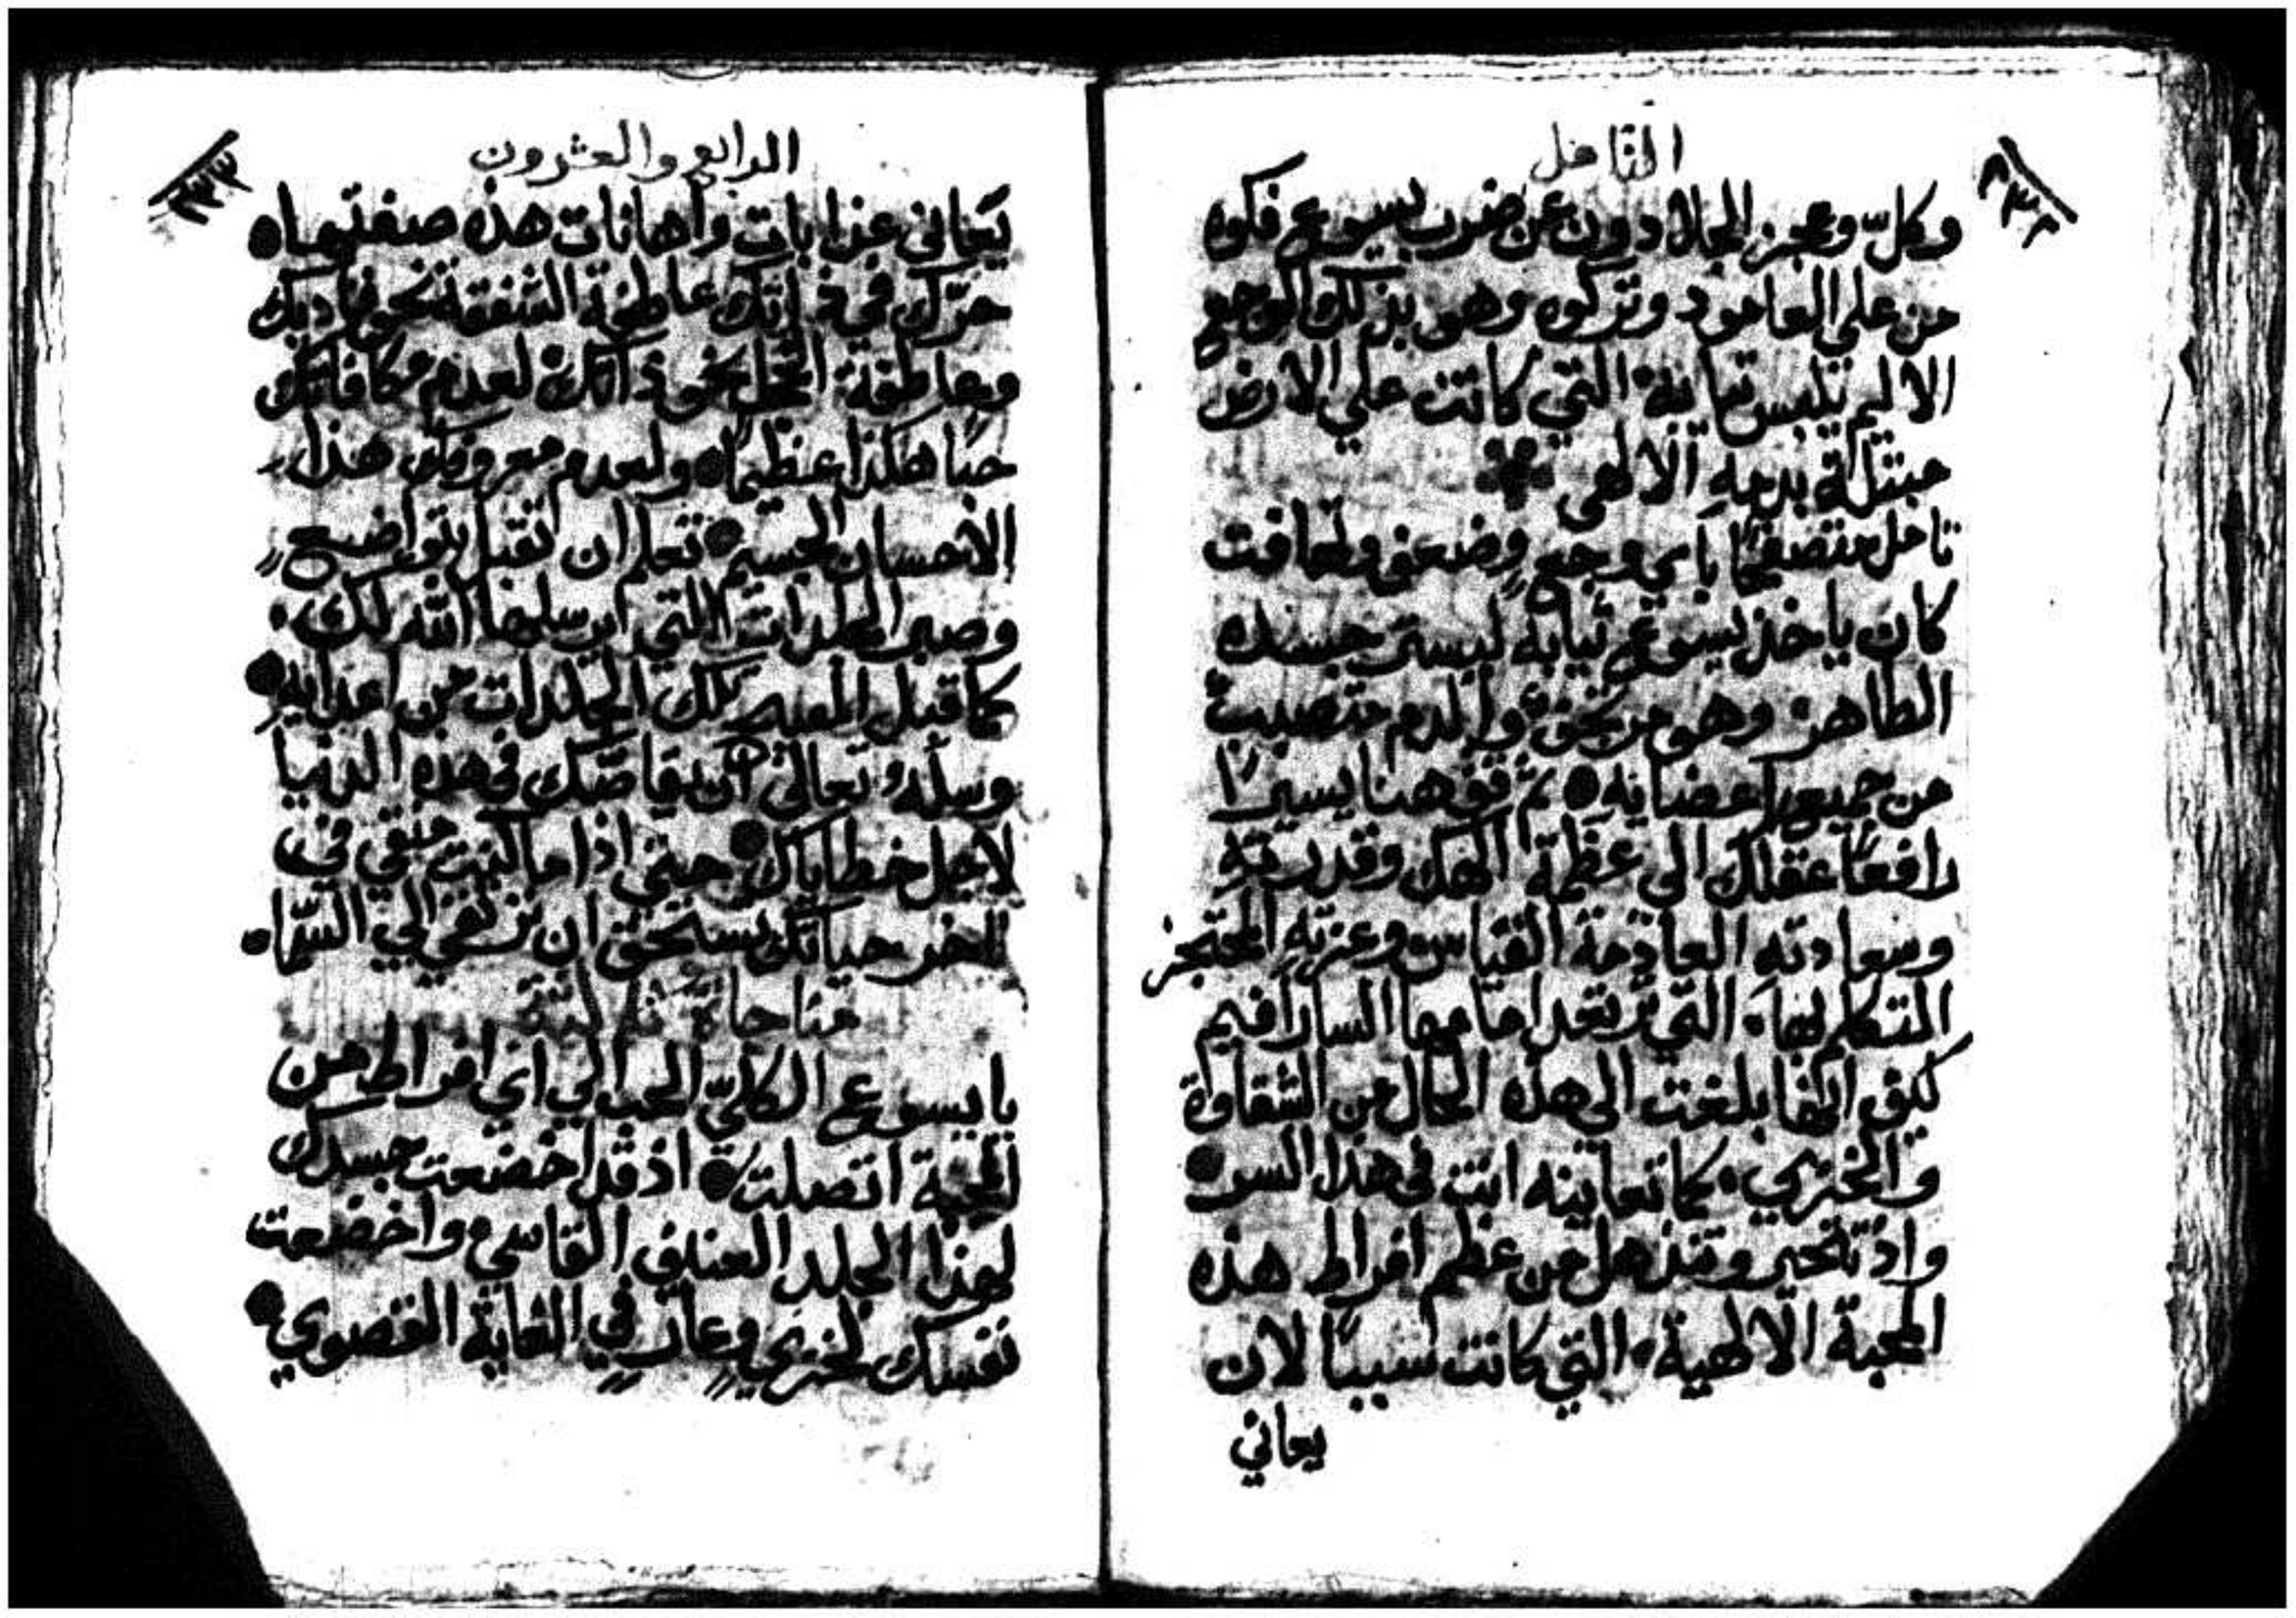 التامل
وكلّ وعجز الجلادون عن ضرب يسوع فكوه
من علي العامود وتركوه وهو بذلك الوجع
الاليم يلبس ثيابه التي كانت علي الارض
مبتلة بدمهِ الالهي
تامل متصفحًا باي وجعٍ وضعف ولهافت
كان ياخذ يسوع ثيابه ليستر جسده
الطاهر وهو مرتجفٌ والدم متصببٌ
من جميع اعضايه ثم قف هنا يسيرًا
رافعًا عقلك الى عظمة الهك وقدرتهِ
وسعادته العادمة القياس وعزتهِ المحتجز
التكلم بها التي ترتعد امامها السارافيم
كيف انها بلغت الى هذه الحال من الشقاوة
والخزي كما تعاينه انت في هذا السر
واذ تتحير وتنذهل من عظم افراط هذه
المحبة الالهية التي كانت سببًا لان
يعاني
الرابع والعشرون
٢٣٣
يعاني عذابات واهانات هذه صفتها
حرّك في ذاتك عاطفة الشفقة نحو فاديك
وعاطفة الخجل نحو ذاتك لعدم مكافاتك
حبًا هكذا عظيمًا ولعدم معروفك هذا
الاحسان الجسيم تعلم ان تقبل بتواضع
وصبر الجلدات التي يرسلها الله لك
كما قبل المسيح تلك الجلدات من اعدايهِ
وسلهُ تعالى ان يقاصّك في هذه الدنيا
لاجل خطاياك حيتي اذا ما كنت متقي في
اخر حياتك تستحق ان ترتقي الي السّما
مناجاة ثالثة
يا يسوع الكليّ الحب الي اي افراط من
المحبة اتصلت اذ قد اخضعت جسدك
لهذا الجلد العنيف القاسي واخضعت
نفسك لخزيٍ وعارٍ في الغاية القصوي